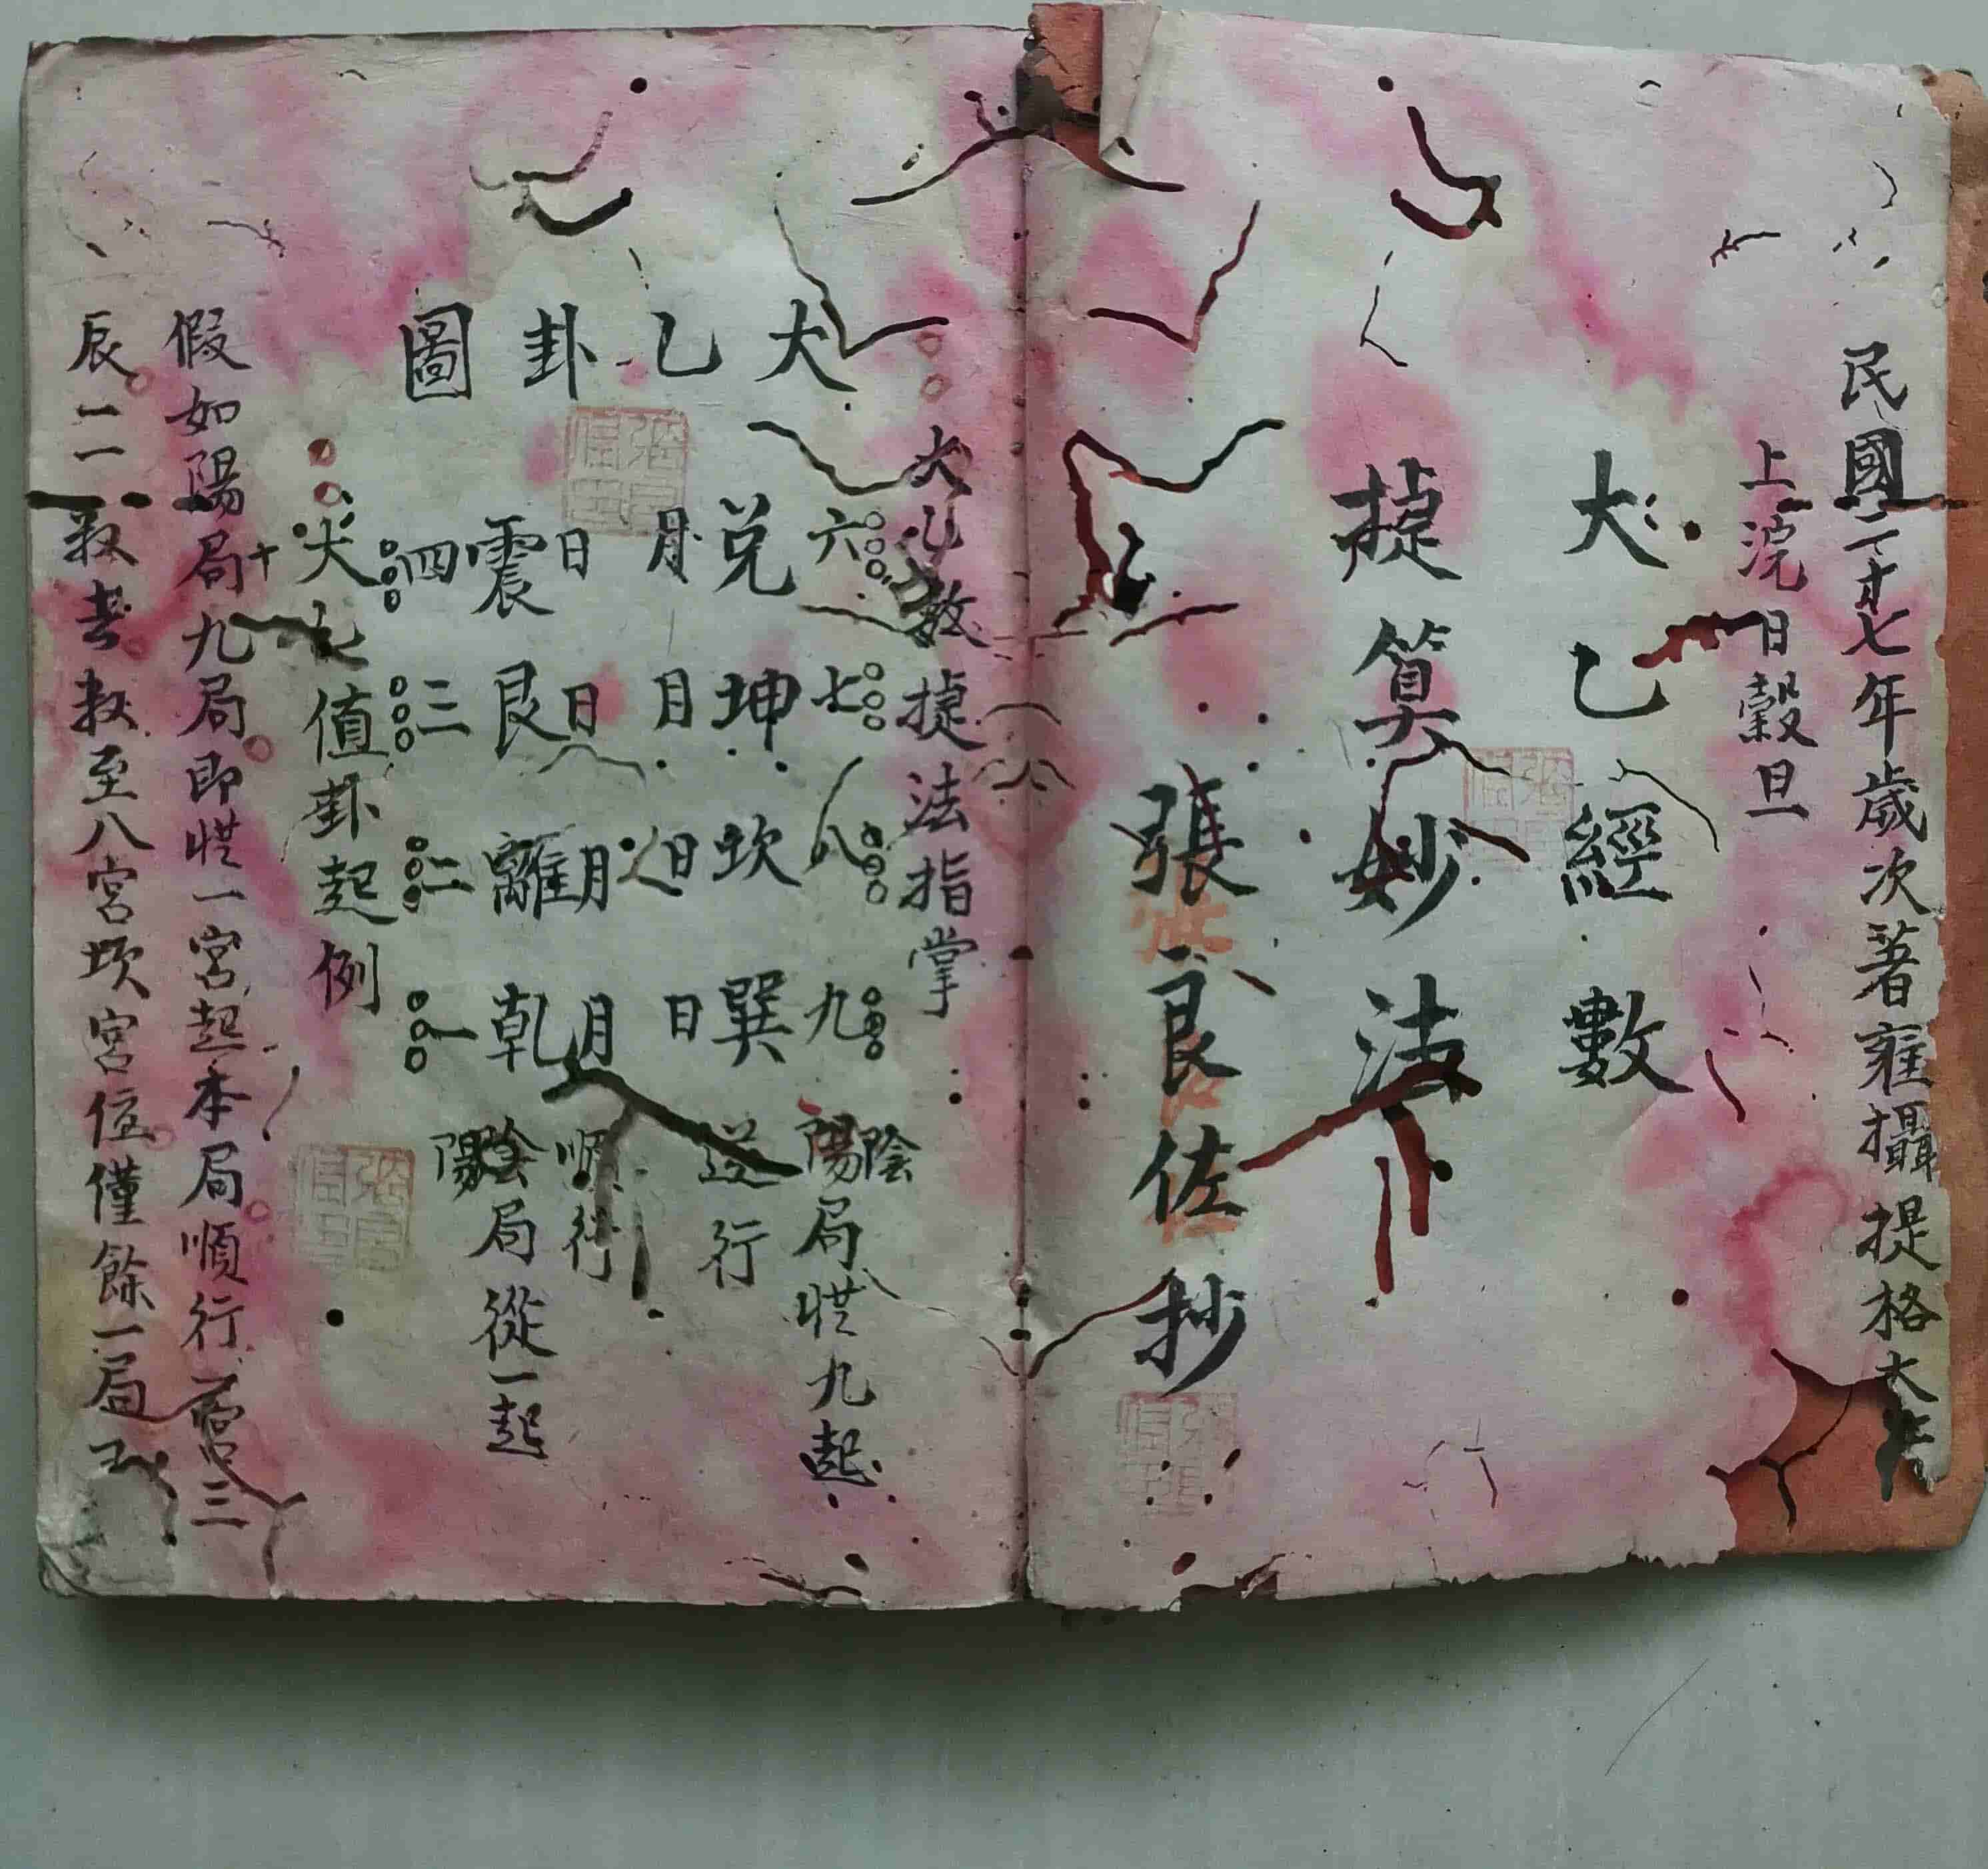 民國二十七年歲次著雍攝提格大呂
上浣日穀旦
大乙經數
捷算妙法
張良佐抄
大乙數捷法指掌
大乙卦圖
六 七 八 九
兌 坤 坎 巽
月 月 日 日
日 日 月 月
震 艮 離 乾
四 三 二 一
陰陽局從九起
逆行
順行
陰陽局從一起
大乙值卦起例
假如陽局九局即從一宮起本局順行二宮三
辰一一數去數至八宮坎宮位僅餘一局